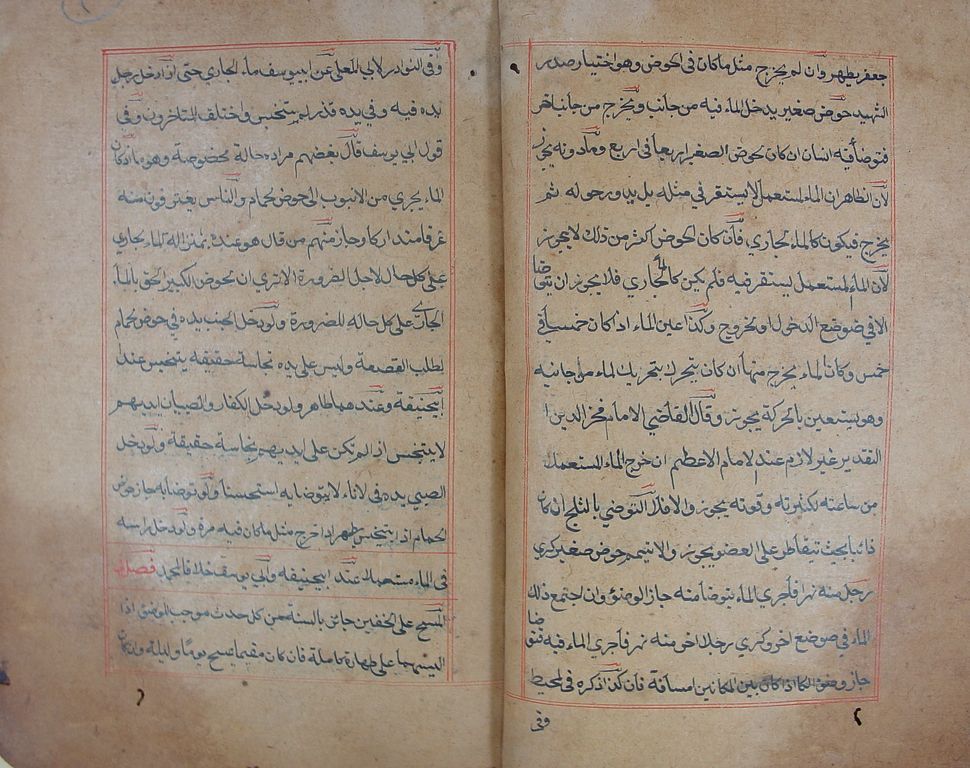 جعفر يطهر وان لم يخرج مثل ما كان في الحوض وهو اختيار صدر
الشهيد حوض صغير يدخل الماء فيه من جانب ويخرج من جانب اخر
فتوضأ فيه انسان ان كان الحوض الصغير اربعا في اربع وما دونه يجوز
لان الظاهر ان الماء المستعمل لا يستقر في مثله بل يدور حوله ثم
يخرج فيكون كالماء الجاري فان كان الحوض اكثر من ذلك لا يجوز
لان الماء المستعمل يستقر فيه فلم يكن كالجاري فلا يجوز ان يتوضا
الا في موضع الدخول او الخروج وكذا عين الماء اذا كان خمسا في
خمس وكان الماء يخرج منها ان كان يتحرك بتحريك الماء من جانبه
وهو يستعين بالحركة يجوز وقال القاضي الامام فخر الدين
التقدير غير لازم عند الامام الاعظم ان خرج الماء المستعمل
من ساعته لكثرته وقوته يجوز والا فلا التوضي بالثلج ان كان
ذائبا بحيث يتقاطر على العضو يجوز والا يتيمم حوض صغير كري
رجل منه نهرا فاجري الماء يتوضا منه جاز الوضوء وان اجتمع ذلك
الماء في موضع اخر وكري رجل اخر منه نهرا فاجري الماء فيه فتوضا
جاز وضوء الكل اذا كان بين المكانين مسافة كذا ذكره في المحيط
وفي
وفي النوادر لابي المعلى عن ابي يوسف ماء الجاري حتى اذا دخل رجل
يده فيه وفي يده قذر لم يتنجس واختلف المتاخرون وفي
قول ابي يوسف قال بعضهم مراده حالة مخصوصة وهو ما اذا كان
الماء يجري من الانبوب الى حوض الحمام والناس يغترفون منه
غرفا متداركا وجاز منهم من قال هو عنده بمنزلة الماء الجاري
على كل حال لاجل الضرورة الا ترى ان الحوض الكبير الحق بالماء
الجاري على كل حال للضرورة ولو دخل الجنب يده في حوض الحمام
لطلب القصعة وليس على يده نجاسة حقيقة يتنجس عند
ابي حنيفة وعندهما طاهر ولو دخل الكفار والصبيان ايديهم
لا يتنجس اذا لم تكن على ايديهم نجاسة حقيقة ولو دخل
الصبي يده في الاناء لا يتوضا به استحسانا ولو توضا به جاز حوض
الحمام اذا تنجس يطهر اذا خرج مثل ما كان فيه مرة ولو دخل راسه
في الماء مستعملا عند ابي حنيفة وابي يوسف خلافا لمحمد فصل
المسح على الخفين جائز بالسنة من كل حدث موجب الوضوء اذا
البسهما على طهارة كاملة فان كان مقيما يمسح يوما وليلة وان كان